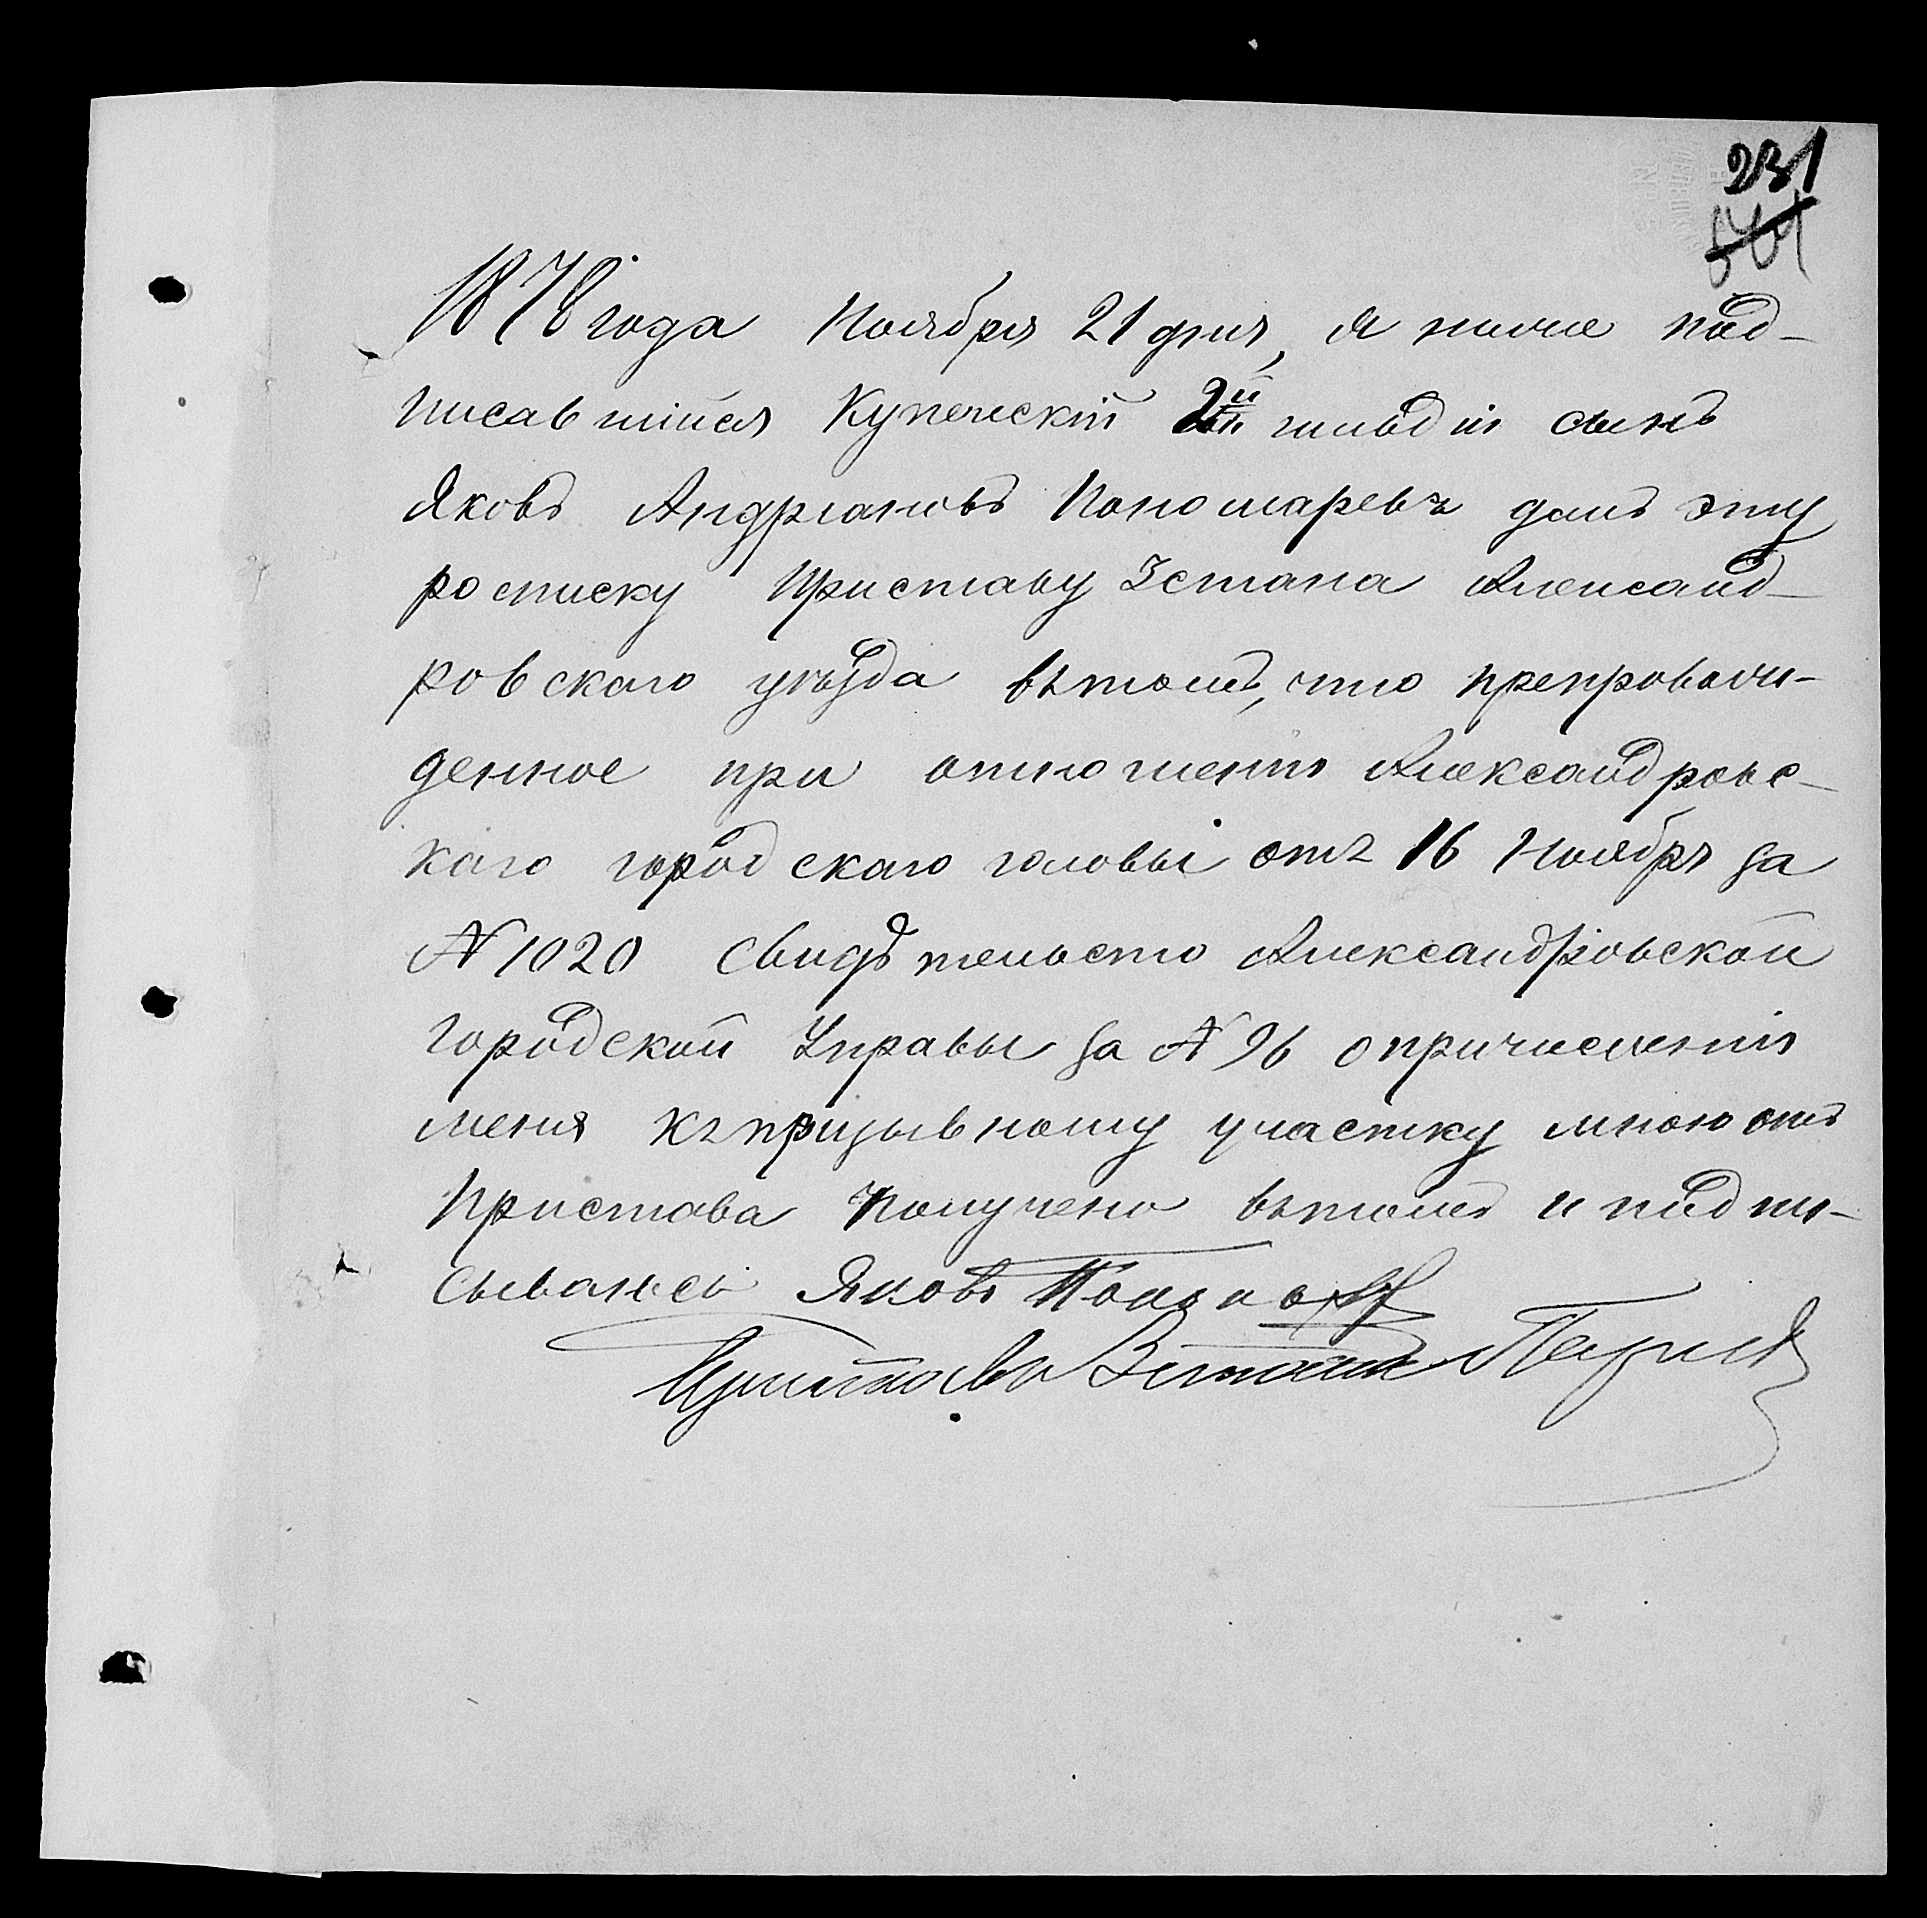 231
1878 года Ноября 21 дня, я ниже под-
писавшійся Купеческій 2й гильдіи сынъ
Яковъ Андріановъ Пономаревъ далъ эту
росписку Приставу 3 стана Александ-
ровскаго уѣзда вътомъ, что препровож-
денное при отношеніи Александровс-
каго городскаго головы отъ 16 Ноября за
№ 1020 Свидѣтельсто Александровской
Городской Управы за № 96 о причисленіи
меня къ призывному участку мною отъ
Пристава получено вътомъ и подпи-
сываюсь Яковъ
Приставъ 3 стана